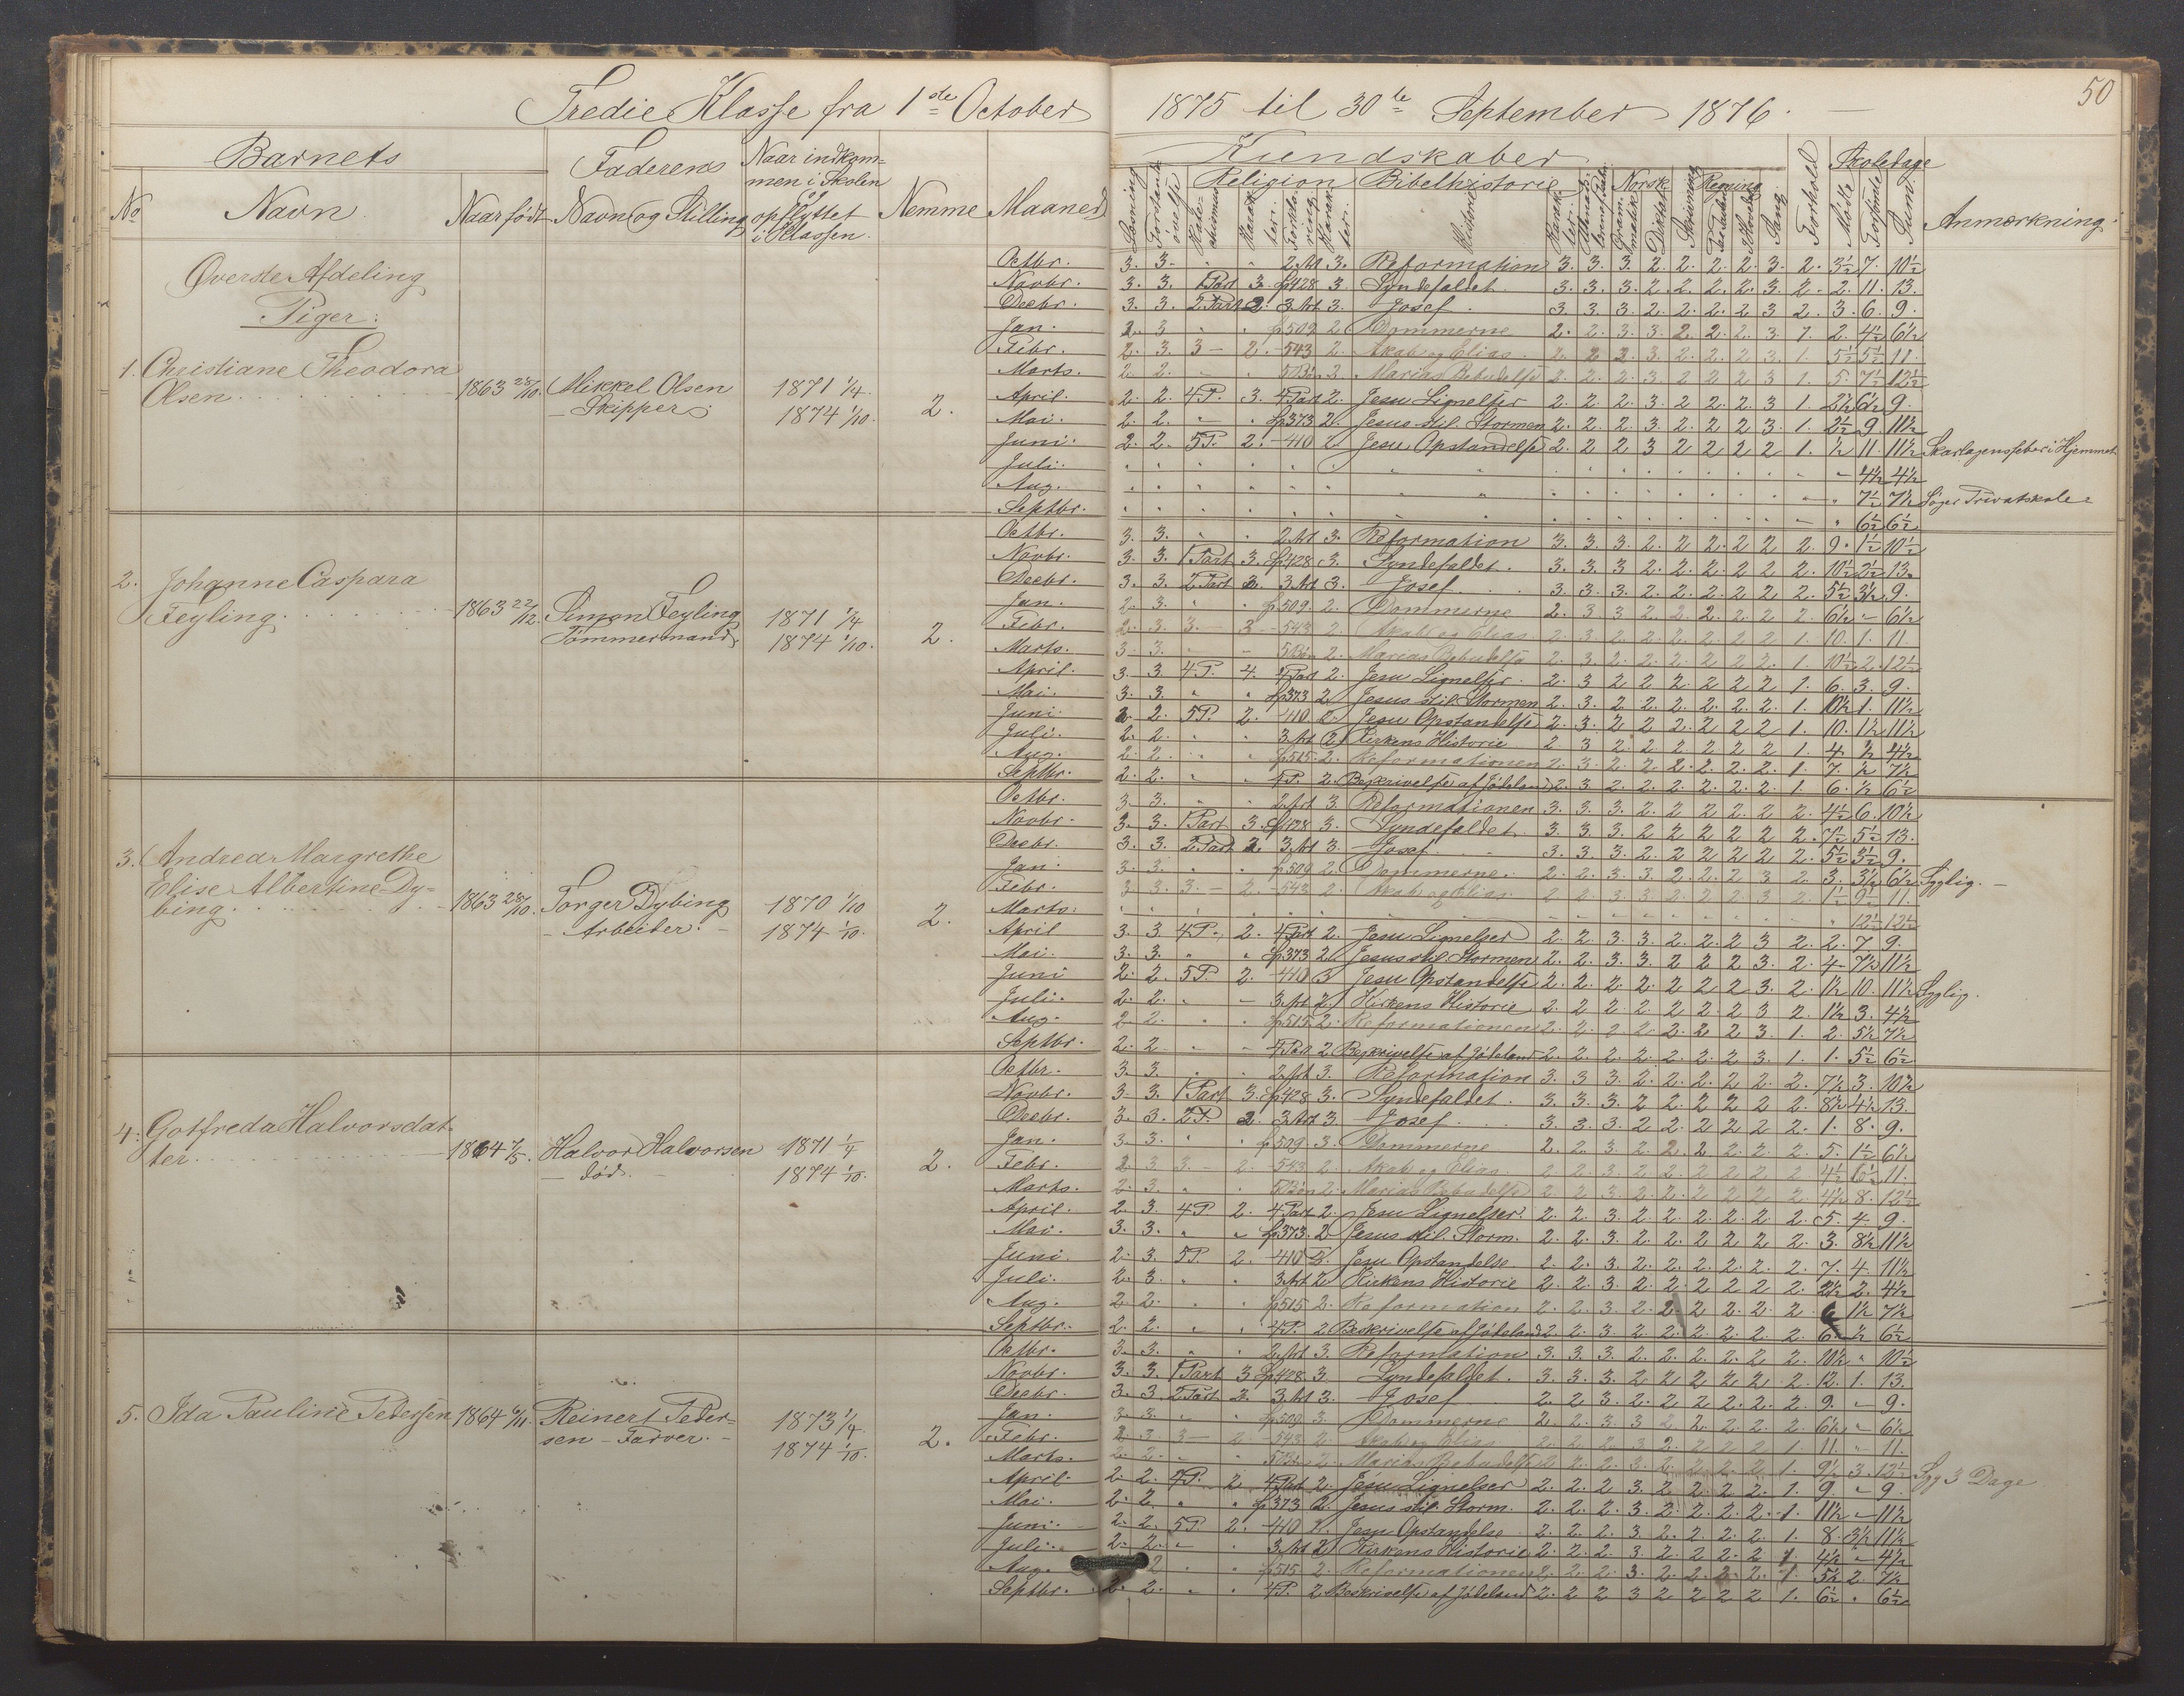 50
Tredie Klasse fra 1ste October 1875 til 30te September 1876.
Barnets
Faderens
Naar indkommen i Skolen og opflyttet i Klassen.
Nemme
Maaned
Kundskaber
Forhold
Skoledage
Anmærkning.
No
Navn
Naar født
Navn og Stilling
Religion
Bibelhistorie
Norsk
Regning
Diktat
Skrivning
Sang
Mødte
Forsømte
Sum
Øverste Afdeling
Piger:
1. Christiane Theodora
Olsen
1863 28/10.
Mikkel Olsen
- Skipper.
1871 1/4.
1874 1/10.
2.
Octbr. 3. 3. " " 2. Art 3. Reformation 3. 3. 3. 2. 2. 2. 2. 3. 2. 3½ 7. 10½
Novbr. 3. 3. 1 Part 3. 428 3. Syndefaldet. 3. 3. 3. 2. 2. 2. 2. 3. 2. 2. 11. 13.
Decbr. 3. 3. 2 Part 2. 3. Art 3. Josef. 3. 3. 3. 2. 2. 2. 2 3 2. 3. 6. 9.
Jan. 509 2 Dommerne 2. 2. 3. 3. 2. 2. 2. 3. 1. 2. 4½ 6½
Febr. 2. 3. 3 - 2. - 543 2. Akab og Elias. 5½ 5½ 11.
Marts. 2. 2. Marias Bebudelse 2. 2. 2. 3. 2 2 2 3 1. 5. 7½ 12½
April. 2. 2. 4 P. 3. 4 Part 2. Jesu Lignelser 2. 2. 2. 3. 2 2. 2. 3 1. 2½ 6½ 9.
Mai. 2. 2. 373 2. Jesus stil. Stormen 2. 2. 2. 3. 2. 2. 2 3. 1. 2½ 9. 11½
Juni. 2. 2. 5 P. 2. - 410 2. Jesu Opstandelse 2. 2. 2 3 2 2 2 2 1. ½ 11. 11½ Skarlagensfeber i Hjemmet
Juli. 4½ 4½
Aug. 7½ 7½ Søger Privatskole
Septbr. 6½ 6½
2. Johanne Caspara
Feyling
1863 22/12.
Simon Feyling
Tømmermand.
1871 1/4
1874 1/10.
2.
Octbr. 3. 3. " " 2. Art 3. Reformation 3. 3. 3. 2. 2 2. 2 2 2. 9. 1½ 10½
Novbr. 3. 3. 1 Part 3. 428 3. Syndefaldet. 3. 3. 3 2. 2. 2. 2 2 2. 10½ 2½ 13.
Decbr. 3. 3. 2 Part 3. 3. Art 3. Josef. 3. 3. 3. 2. 2. 2. 2. 2 2. 5½ 3½ 9.
Jan. 509. 2. Dommerne 2. 3. 3 2 2. 2. 2. 2 2. 6½ - 6½
Febr. 543 2 Akab og Elias 10. 1. 11
Marts. 3. 3. Marias Bebudelse 2. 3. 2. 2. 2. 2 2 2. 1. 10½ 2. 12½
April. 3. 3. 4 P. 4. 4 Part 2. Jesu Lignelser. 2. 3 2 2 2. 2 2 2 1. 6. 3. 9.
Mai. 3. 3. " " 373 2. Jesus stil. Stormen 2. 3. 2 2. 2. 2. 2. 2. 1. 10½ 1. 11½
Juni. 2. 2. 5 P. 2. - 410 2. Jesu Opstandelse 2. 3. 2 2 2. 2 2 2 1. 10. 1½ 11½
Juli. 2. 2. " " 3. Art 2. Kirkens Historie 2 3 2. 2 2 2 2 2 1. 4. ½ 4½
Aug. 2. 2. 515. 2. Reformationen 2. 3. 2. 2. 2. 2. 2. 2. 1. 7. ½ 7½
Septbr. 2. 2. 4 P. 2. Beskrivelse af Jødeland 2. 3 2. 2. 2. 2. 2. 2. 1. 6. ½ 6½
3. Andrea Margrethe
Elise Albertine Dy=
bing
1863 28/10.
Torger Dybing
- Arbeider. -
1870 1/10
1874 1/10.
2.
Octbr. 3. 3. " " 2. Art 3. Reformationen 3. 3. 3. 2. 2 2 2 2 2. 4½ 6. 10½
Novbr. 3. 3. 1 Part 3. 428 3. Syndefaldet. 3. 3 3. 2 2 2 2 2 2. 7½ 5½ 13.
Decbr. 3. 3. 2 Part 3. 3. Art 3. Josef. 3. 3. 3. 2. 2. 2 2 2 2. 5½ 3½ 9.
Jan. 3. 3. 509 2 Dommerne. 2. 2. 3. 3. 2. 2. 2 3 2 3. 3½ 6½ Syglig. -
Febr. 3. 3. 3. - 2. - 543 2. Akab og Elias 1½ 9½ 11.
Marts. 12½ 12½
April 3. 3. 4 P. 2. 4 Part 2. Jesu Lignelser 2. 2 3 3. 2. 2. 2 3 2. 2. 7. 9.
Mai. 3. 3. " " 373 2 Jesus stil. Stormen 2. 2. 3. 3. 2 2 2 3. 2. 4 7½ 11½
Juni 2. 2. 5 P. 2. - 410 3 Jesu Opstandelse 2. 2. 2. 2. 2 2 2 3. 2. 1½ 10. 11½ Syglig.
Juli. 2. 2. " - 3. Art 2. Kirkens Historie 2. 2 2. 2. 2 2 2 3 2. 1½ 3. 4½
Aug. 2. 2. 515. 2. Reformationen 2. 2. 2 2. 2. 2 2 3 1. 2. 5½ 7½
Septbr. 2. 2 4 Part 2 Beskrivelse af Jødeland 2. 2. 2. 2. 2. 2. 2 3. 1. 1. 5½ 6½
4. Gotfreda Halvorsdat=
ter
1864 7/5.
Halvor Halvorsen
- død. -
1871 1/4
1874 1/10.
2.
Octbr. 3. 3. 2. Art 3. Reformation 3. 3 3. 2. 2. 2. 2 2. 2. 7½ 3. 10½
Novbr. 3. 3. 1 Part 3. 428 3. Syndefaldet. 3. 3. 3. 2 2. 2 2 2 2. 8½ 4½ 13.
Decbr. 3. 3. 2 P. 2. 3. Art 3 Josef. 3. 3. 3. 2 2. 2 2 2 2. 1. 8. 9.
Jan. 3. 3. 509 3. Dommerne 2. 2 3. 2. 2. 2 2. 2. 2. 5. 1½ 6½
Febr. 543 2. Akab og Elias 4½ 6½ 11.
Marts. 2. 3. Marias Bebudelse 2 2 3. 2. 2. 2 2 2 2. 4½ 8. 12½
April. 2. 3. 4 P. 2. 4 Part 2. Jesu Lignelser. 2. 2. 3. 2 2. 2. 2. 2 2. 5. 4. 9.
Mai. 3. 3. " " 373. 2 Jesus stil. Storm. 2. 2. 3. 2 2. 2 2 2 2. 3. 8½ 11½
Juni. 2. 3. 5 P. 2. - 410 2. Jesu Opstandelse 2. 2. 3. 2. 2. 2. 2. 2. 2. 7. 4. 11½
Juli. 2. 3. " " 3. Art 2 Kirkens Historie 2. 2 3 2. 2. 2 2 2 2. 2½ 2. 4½
Aug. 2. 2. 515 2. Reformation 2. 2. 3. 2. 2. 2 2. 2. 2 6 1½ 7½
Septbr. 2. 2. 4 P. 2 Beskrivelse af Jødeland 2. 2. 3. 2 2. 2. 2. 2. 2 6. ½ 6½
5. Ida Pauline Pedersen
1864 6/11.
Reinert Peder=
sen - Farver. -
1873 1/4.
1874 1/10.
2.
Octbr. 3. 3. 2. Art 3. Reformation 3. 3. 3. 2. 2. 2. 2. 2 2. 10½ " 10½
Novbr. 3. 3. 1 Part 3 428. 3 Syndefaldet. 3. 3. 3. 2 2 2 2 2. 2. 12. 1. 13.
Decbr. 3. 3. 2 Part 2. 3. Art 3. Josef 2. 2. 3 2. 2. 2 2. 2. 2. 9. - 9.
Jan. 3. 3. 509 3. Dommerne 2. 2. 3 3 2 2. 2. 2. 2. 6½ - 6½
Febr. 543 2. Akab og Elias 11. - 11.
Marts. 2. 2. Marias Bebudelse 9½ 3. 12½ Syg 3 Dage
April. 2. 2. 4 P. 2 4 Part 2. Jesu Lignelser 2. 2. 2 3 2 2. 2 2. 1. 9. " 9.
Mai. 2. 2. " " 373 2. Jesus stil. Storm. 2. 2. 2 3. 2. 2. 2. 2. 1. 11½ - 11½
Juni. 2. 2. 5 P. 2. - 410 2. Jesu Opstandelse. 2. 2. 2 3. 2. 2. 2. 2. 1. 8. 3½ 11½
Juli. 2. 2. " " 3. Art 2 Kirkens Historie 2. 2. 2. 3. 2. 2 2. 2 1. 4½ " 4½
Aug. 2 515 2. Reformationen 2. 2. 2 3. 2. 2. 2. 2. 1. 5½ 2. 7½
Septbr. 2. 2. " " 4 P. 2 Beskrivelse af Jødeland 2. 2 2 3 2 2 2 2 1. 6½ " 6½